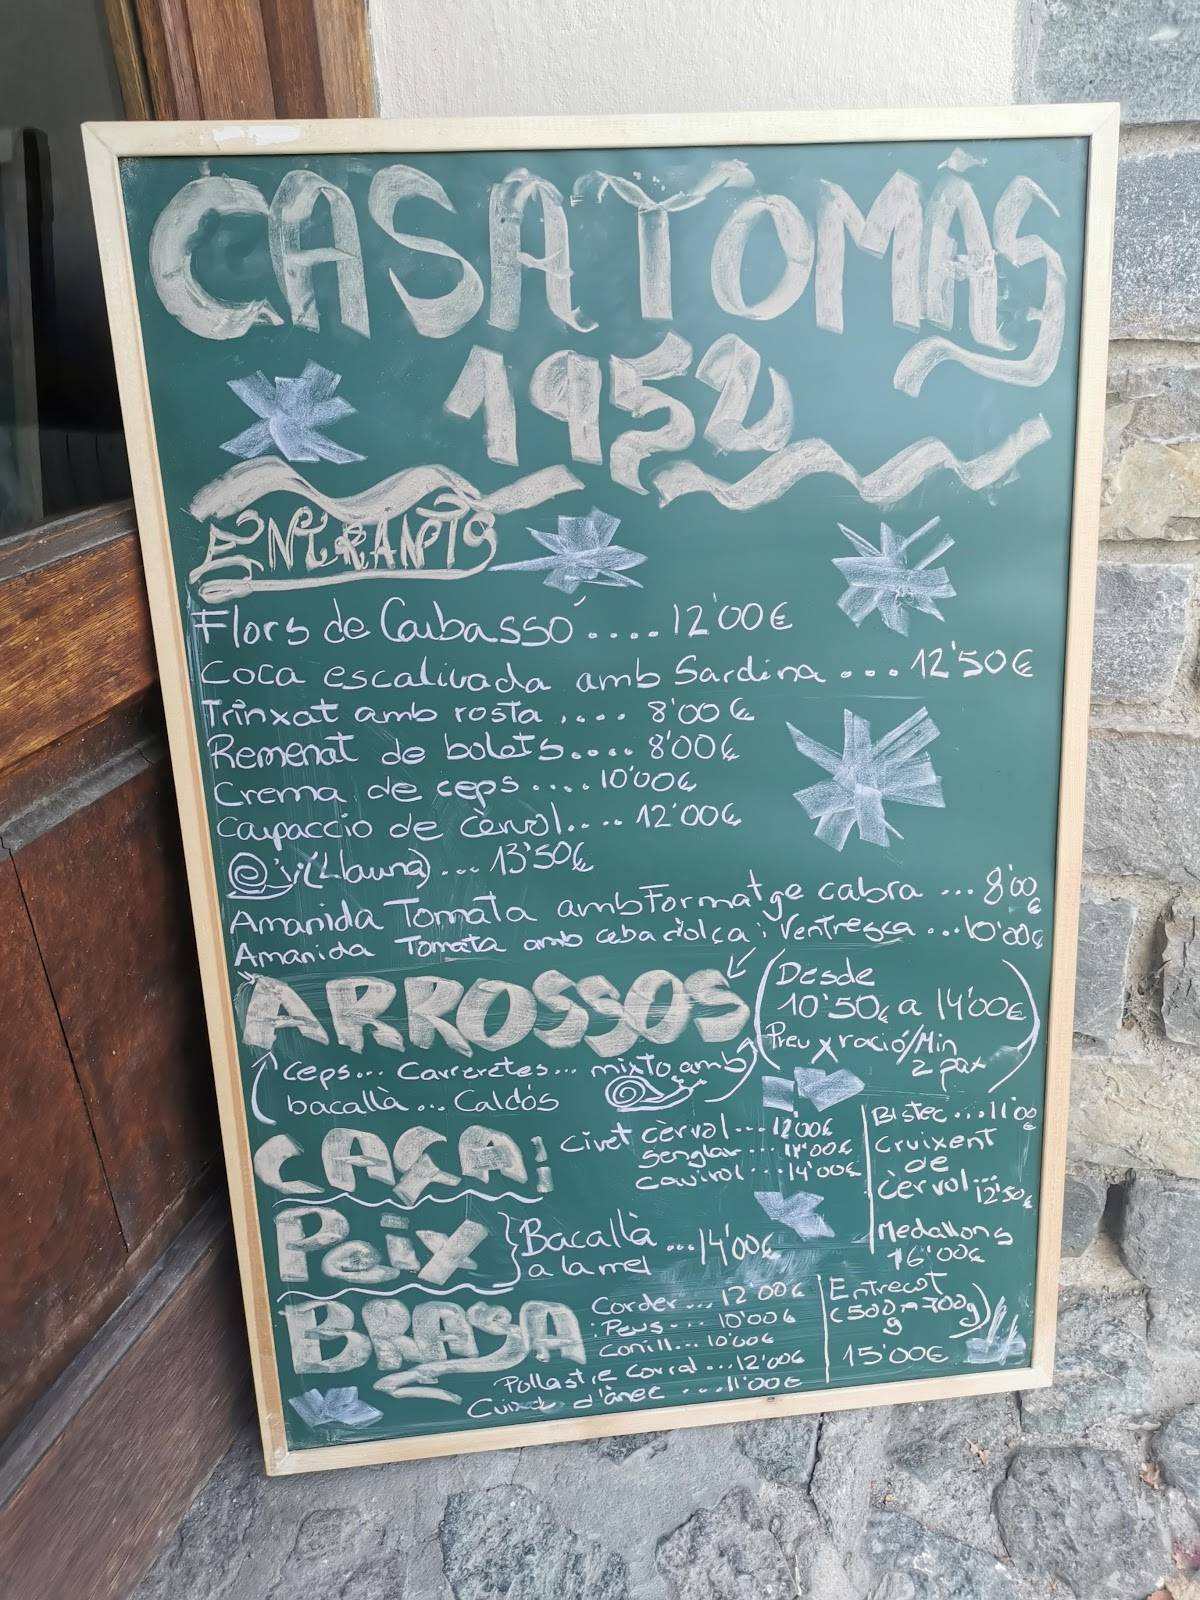 CASA TOMÀS
1952
ENTRANTS
Flors de Carbassó .... 12'00€
Coca escalivada amb Sardina ... 12'50€
Trinxat amb rosta .... 8'00€
Remenat de bolets.... 8'00€
Crema de ceps .... 10'00€
Carpaccio de Cèrvol.... 12'00€
(Llauna) ... 13'50€
Amanida Tomata amb Formatge cabra ... 8'00€
Amanida Tomata amb ceba dolça i Ventresca ... 10'00€
ARROSSOS
Desde
10'50€ a 14'00€
Preu x ració/Min
2 pax
Ceps... Carreretes... mixto amb
bacallà ... Caldós
CAÇA:
Civet cèrvol ... 12'00€
Senglar ... 11'00€
Cavirol ... 14'00€
Bistec ... 11'00
Cruixent
de
Cèrvol ... 12'50€
Medallons
16'00€
Peix
Bacallà ... 14'00€
a la mel
BRASA
Corder ... 12'00€
Peus ... 10'00€
Conill ... 10'00€
Pollastre Corral ... 12'00€
Cuixa d'ànec ... 11'00€
Entrecot
(500g - 700g)
15'00€